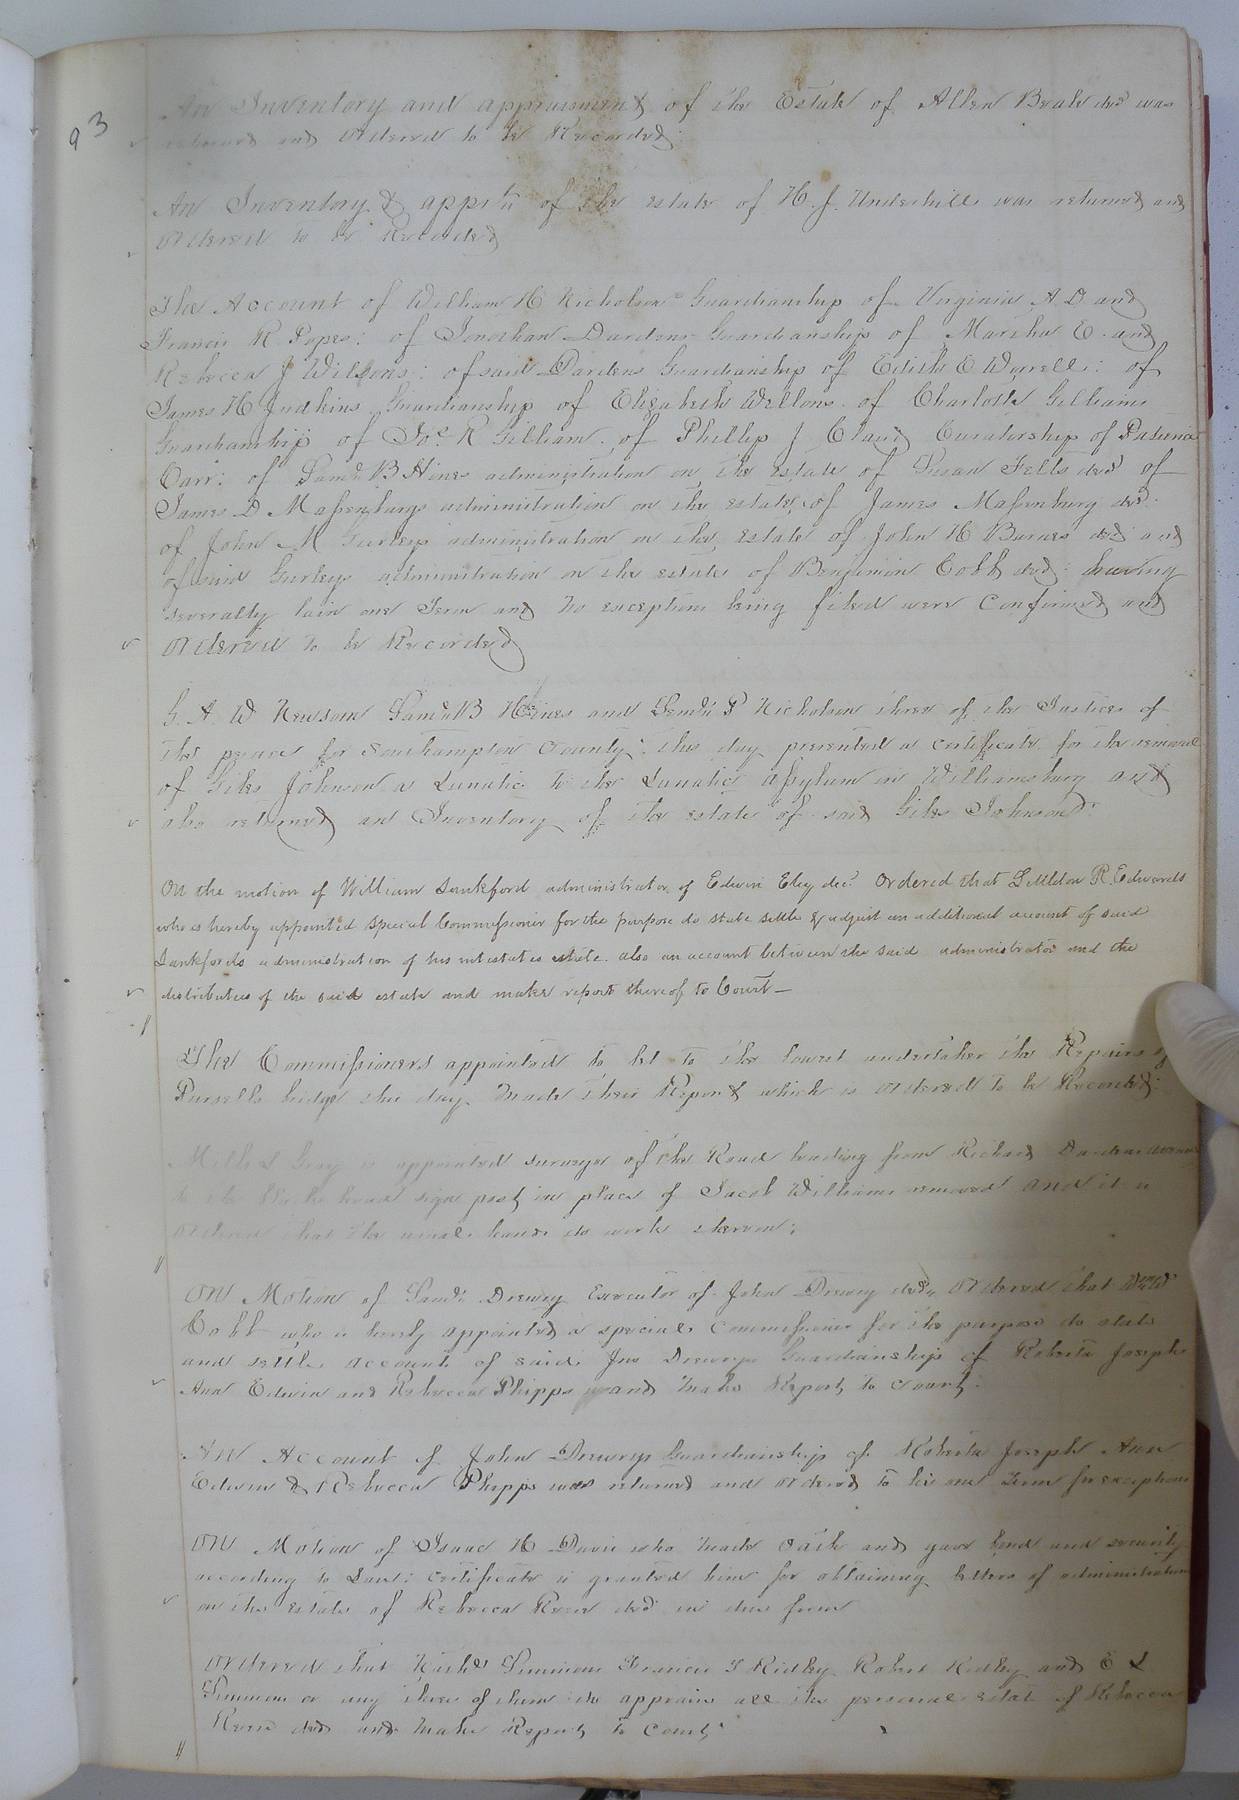 93
An Inventory and appraisment of the Estate of Allen Beale decd was
returned and Ordered to be Recorded:
An Inventory & apprtn of the estate of H. J. Underhill was returned and
Ordered to be Recorded
The Account of William H Nicholson Guardianship of Virginia A D and
Francis R Popes: of Jonathan Dardens Guardianship of Martha E. and
Rebecca J Wilsons: of said Dardens Guardianship of Edith E : of
James H Judkins Guardianship of Elizabeth Wellons of Charlotte Gilliams
Guardianship of Jos. R Gilliam. of Phillip J Claud Curatorship of
Carr: of Saml B Hines administration on the estate of Susan Felts decd of
James D Massenburgs administration on the estate of James Massenburg decd.
of John M Gurleys administration on the Estate of John H Barnes decd and
of said Gurleys administration on the estate of Benjamin Cobb decd: having
severally lain one Term and no exceptions being filed were Confirmed and
Ordered to be Recorded
G. A. W Newsom Saml B Hines and P Nicholson three of the Justices of
the peace for Southampton County: this day presented a certificate for the removal
of Giles Johnson a Lunatic to the Lunatic Assylum in Williamsburg and
also returned an Inventory of the estate of said Giles Johnson
On the motion of William Lankford administrator of Edwin Eley decd. Ordered that Littleton R. Edwards
who is hereby appointed special Commissioner for the purpose do state settle & adjust an additional account of said
Lankfords administration of his intestates estate. also an account between the said administrator and the
distributees of the said estate and make report thereof to Court—
The Commissioners appointed to let to the lowest undertaker the Repairs of
Pursells bridge this day made their Report which is Ordered to be Recorded:
Gray is appointed surveyor of the Road leading from Richard Darden
to the head sign post, in place of Jacob Williams removed and it is
Ordered that the usual hands do work thereon:
On Motion of Saml: Drewry Executor of John Drewry decd, Ordered that
Cobb who is hereby appointed a special Commissioner for the purpose do state
and settle account of said Jno Drewrys Guardianship of Roberta Joseph
Ann Edwin and Rebecca Phipps and make Report to Court.
An Account of John Drewrys Guardianship of Roberta Joseph Ann
Edwin & Rebecca Phipps was returned and Ordered to lie one Term for exceptions
On Motion of Isaac H Davis who made Oath and gave bond and security
according to Law: certificate is granted him for obtaining letters of administration
on the Estate of Rebecca decd in due form
Ordered that Simmons Francis T Ridley Robert Ridley and E L
Simmons or any three of them do appraise all the personal estate of Rebecca
decd and make Report to Court